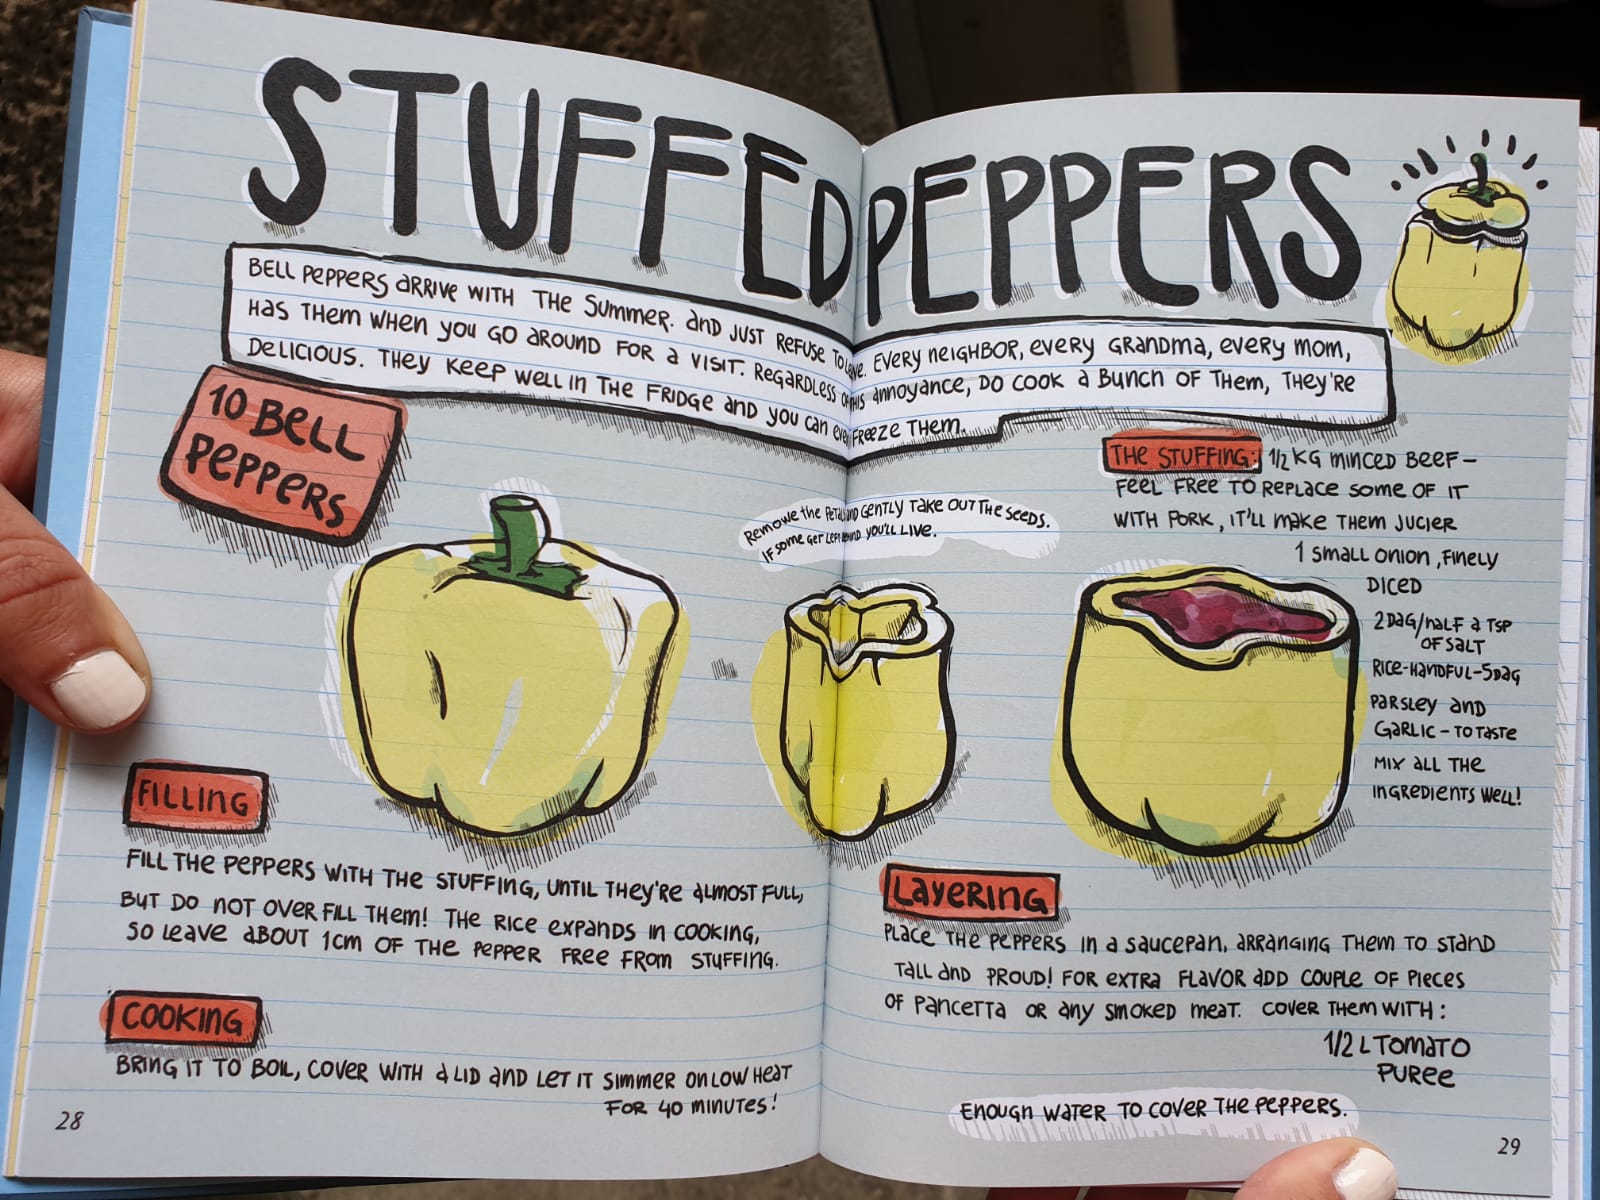 STUFFED PEPPERS
BELL PEPPERS ARRIVE WITH THE SUMMER. AND JUST REFUSE TO LEAVE. EVERY NEIGHBOR, EVERY GRANDMA, EVERY MOM,
HAS THEM WHEN YOU GO AROUND FOR A VISIT. REGARDLESS OF THIS ANNOYANCE, DO COOK A BUNCH OF THEM, THEY'RE
DELICIOUS. THEY KEEP WELL IN THE FRIDGE AND YOU CAN EVEN FREEZE THEM.
10 BELL
PEPPERS
REMOWE THE PETALS AND GENTLY TAKE OUT THE SEEDS.
IF SOME GET LEFT BEHIND YOU'LL LIVE.
THE STUFFING: 1/2 KG MINCED BEEF-
FEEL FREE TO REPLACE SOME OF IT
WITH PORK, IT'LL MAKE THEM JUCIER
1 SMALL ONION, FINELY
DICED
2DAG/HALF A TSP
OF SALT
RICE-HANDFUL-5DAG
PARSLEY AND
GARLIC - TO TASTE
MIX ALL THE
INGREDIENTS WELL!
FILLING
FILL THE PEPPERS WITH THE STUFFING, UNTIL THEY'RE ALMOST FULL,
BUT DO NOT OVER FILL THEM! THE RICE EXPANDS IN COOKING,
SO LEAVE ABOUT 1CM OF THE PEPPER FREE FROM STUFFING.
LAYERING
PLACE THE PEPPERS IN A SAUCEPAN, ARRANGING THEM TO STAND
TALL AND PROUD! FOR EXTRA FLAVOR ADD COUPLE OF PIECES
OF PANCETTA OR ANY SMOKED MEAT. COVER THEM WITH:
1/2 L TOMATO
PUREE
ENOUGH WATER TO COVER THE PEPPERS.
COOKING
BRING IT TO BOIL, COVER WITH A LID AND LET IT SIMMER ON LOW HEAT
FOR 40 MINUTES!
28
29